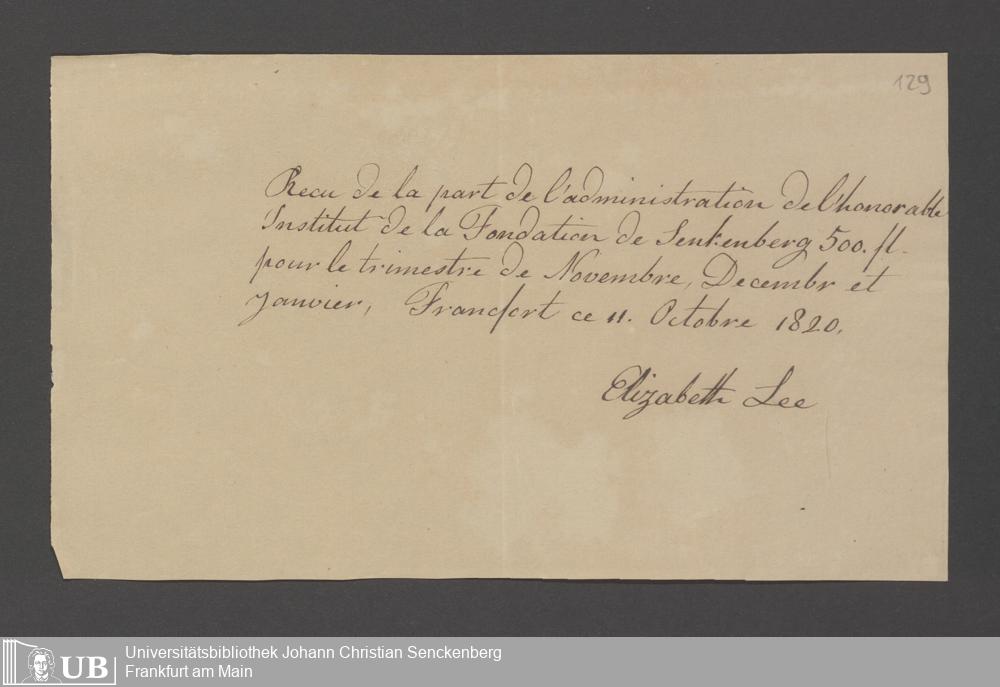 129
Recu de la part de l'administration de l'honorable
Institut de la Fondation de Senkenberg 500. fl.
pour le trimestre de Novembre, Decembr et
Janvier, Francfort ce 11. Octobre 1820.
Elizabeth Lee
UB Universitätsbibliothek Johann Christian Senckenberg
Frankfurt am Main